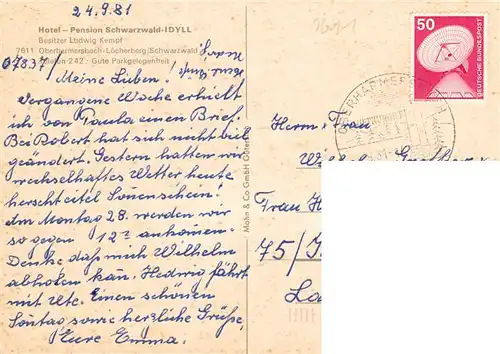 24.9.81
Hotel – Pension Schwarzwald-IDYLL
Besitzer Ludwig Kempf
7611 Oberharmersbach-Löcherberg/Schwarzwald
Telefon 242 · Gute Parkgelegenheit
07837/
Meine Lieben!
Vergangene Woche erhielt
ich von Paula einen Brief.
Bei Robert hat sich nicht viel
geändert. Gestern hatten wir
wechselhaftes Wetter heute
herscht eitel Sonenschein!
Am Montag 28. werden wir
so gegen 12 ankomen.
Denke daß mich Wilhelm
abholen kan. Hedwig fährt
mit Ute. Einen schönen
Sontag sowie herzliche Grüße,
Eure Emma.
Mohn & Co GmbH
50
DEUTSCHE BUNDESPOST
OBERHARMERS
Herrn, Frau
Frau H
75/